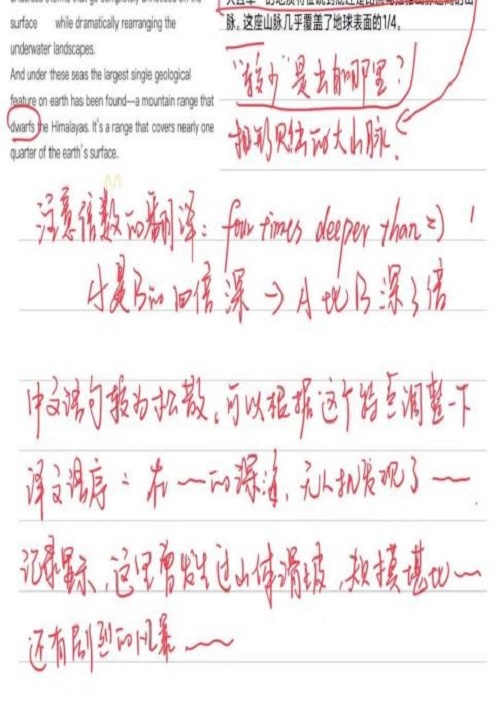 surface while dramatically rearranging the
underwater landscapes.
And under these seas the largest single geological
feature on earth has been found—a mountain range that
dwarfs the Himalayas. It's a range that covers nearly one
quarter of the earth's surface.
脉。这座山脉几乎覆盖了地球表面的1/4。
"较少"是出自哪里?
相形见绌的大山脉.
注意倍数的翻译: four times deeper than =)
A是B的四倍深 → A比B深3倍
中文语句较为松散,可以根据这个特点调整一下
译文语序: 在 一的深海, 无人机发现了 一
记录显示, 这里曾发生过山体滑坡, 规模堪比一
还有剧烈的风暴 一